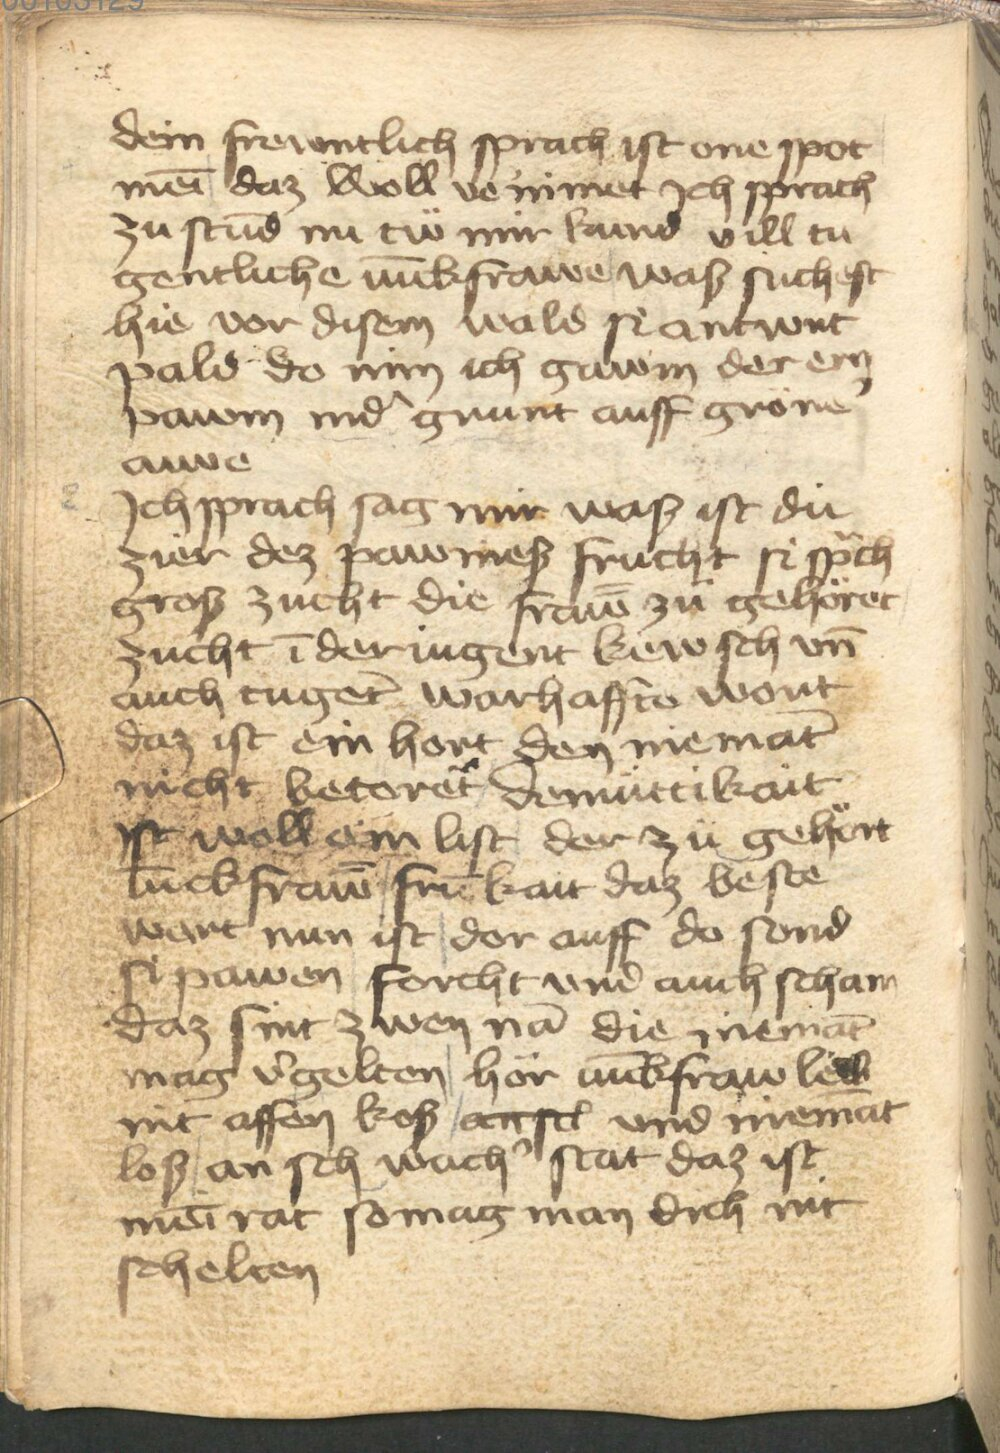 00103129
dein frewntlich sprach ist one spot
mēī daz woll ve nimet Ich sprach
zu stūd nu tuͦ mir kund vill tu
gentliche iūkfrawe waß suchest
hie vor disem wald si antwurt
pald do nim ich gawm der ern
pawm ind᾽ grunt auff gröne᾽
auwe
Ich sprach sag mir waß ist du
zier dez pawmeß frucht si sp͛ch
groß zucht die frawē zu gehöret
zucht ī der iugent kewsch vn̄
auch tuget̄ warhaffte wort
daz ist ein hort den niemāt
nicht betoret̄ demuttikait
ist woll ein list der zu gehört
iūckfrawē frūkait daz beste
wart nun ist dor auff do sond
si pawen forcht vnd auch scham
daz sint zwen nā die niemāt
mag v᾽gelten hör iūkfraw
nit affen koß vnd niemāt
loß an sch wach᾽ stat daz ist
mēī rat so mag man dich nit
schelten